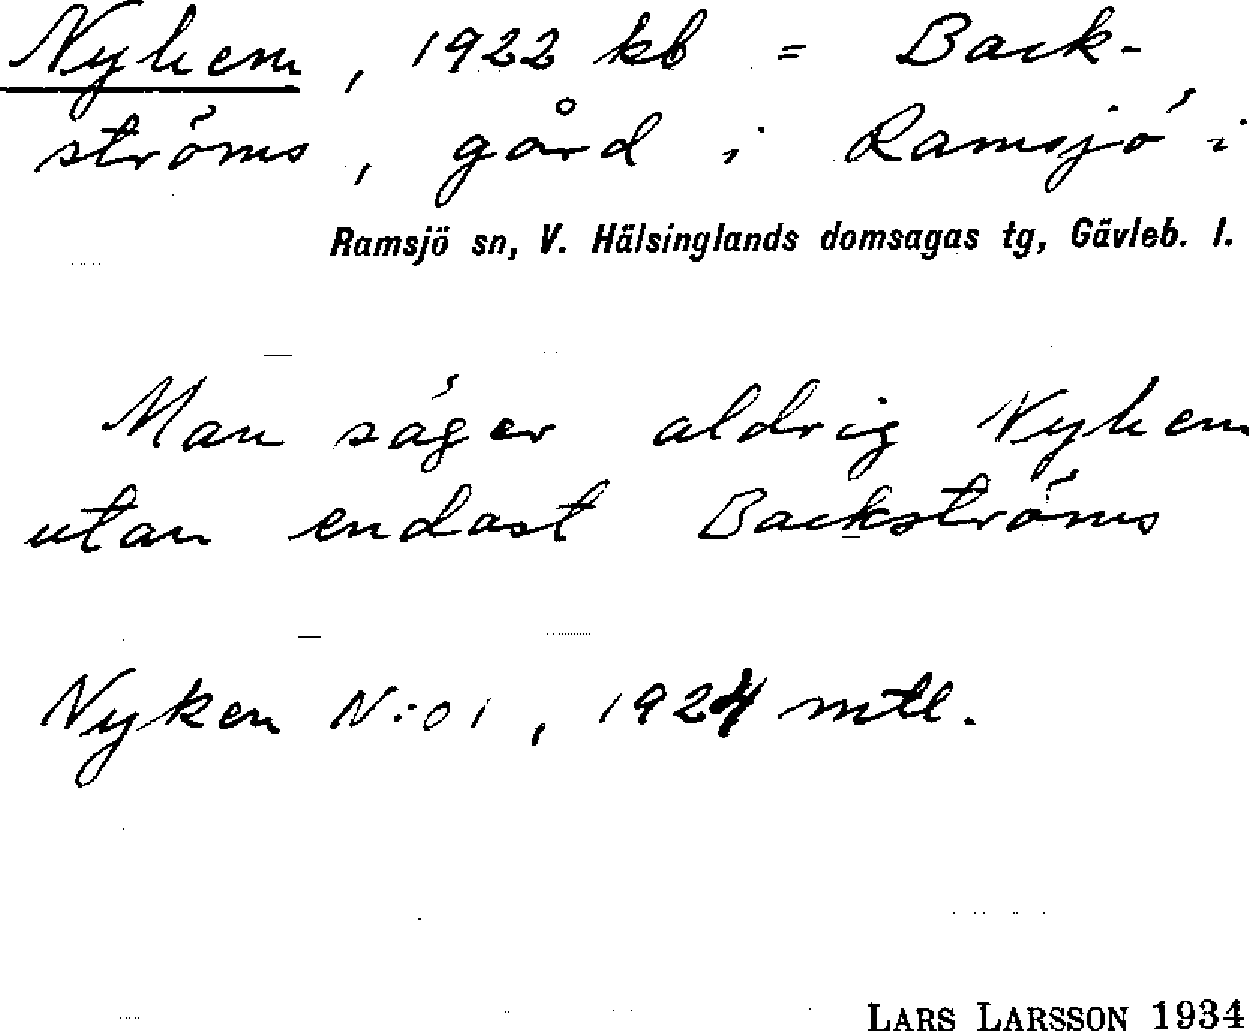 Nyhem, 1922 kb = Back-
ströms, gård i Ramsjö i
Ramsjö sn, V. Hälsinglands domsagas tg, Gävleb. l.
Man säger aldrig Nyhem
utan endast Backströms
Nyken N:o 1, 1924 mtl.
LARS LARSSON 1934